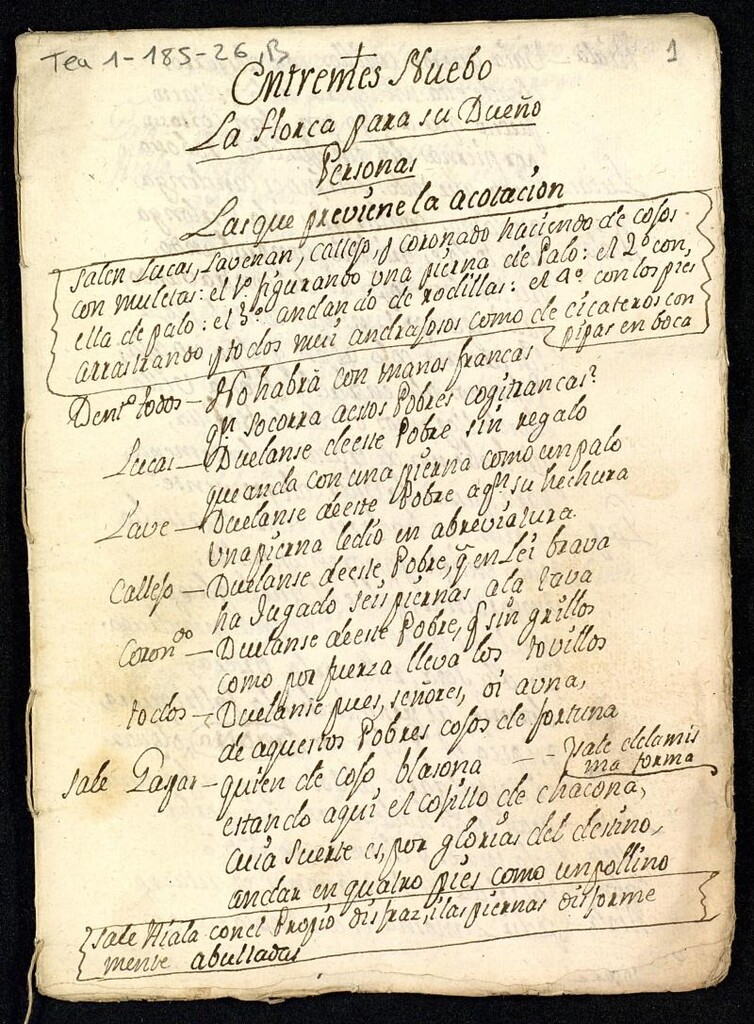 Tea 1-185-26, B
1
Entremes Nuebo
La Horca para su Dueño
Personas
Las que previene la acotacion
Salen Lucas, Lavenan, Callejo, y Coronado haciendo de cojos
con muletas: el 1º figurando una pierna de Palo: el 2º con,
ella de palo: el 3º andando de rodillas: el 4º con los pies
arrastrando y todos mui andrajosos como de cicateros con
pipas en boca
Dentº todos - No habrà con manos francas
qn socorra a estos Pobres cogitrancas?
Lucas - Duelanse de este Pobre sin regalo
que anda con una pierna como un palo
Lave - Duelanse de este Pobre a qn su hechura
una pierna le dio en abreviatura.
Callejo - Duelanse de este Pobre, q en Lei brava
ha Jugado seis piernas a la tava
Corondo - Duelanse de este Pobre, q sin grillos
como por fuerza lleva los tovillos
todos - Duelanse pues, señores, oi a una,
de aquestos Pobres cojos de fortuna
Sale Gaspar - quien de cojo blasona - - sale de la mis
ma forma
estando aqui el cojillo de chacona,
cuia suerte es, por glorias del destino,
andar en quatro pies como un pollino
sale Aiala con el Propio disfraz, i las piernas disforme
mente abultadas